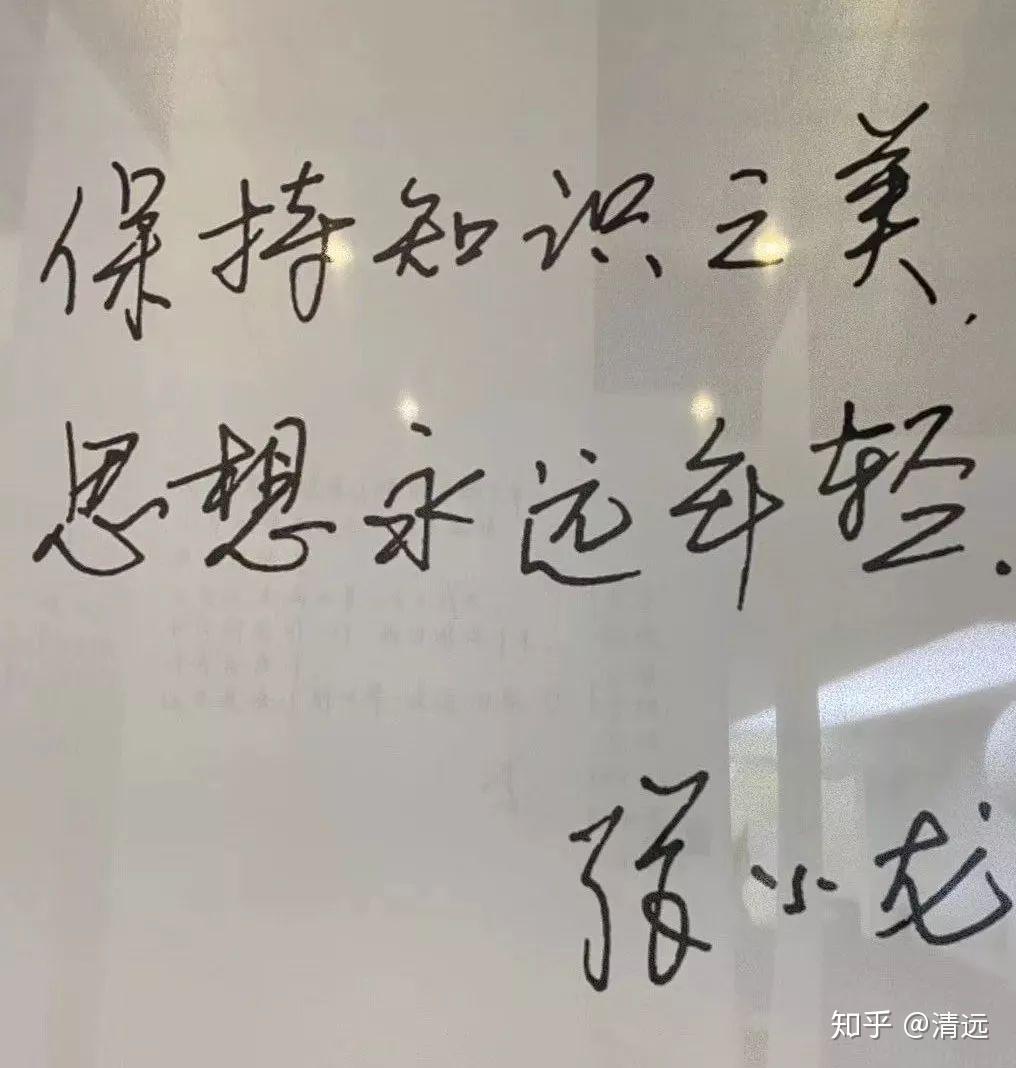 保持知识之美,
思想永远年轻.
张小龙
知乎 @清远